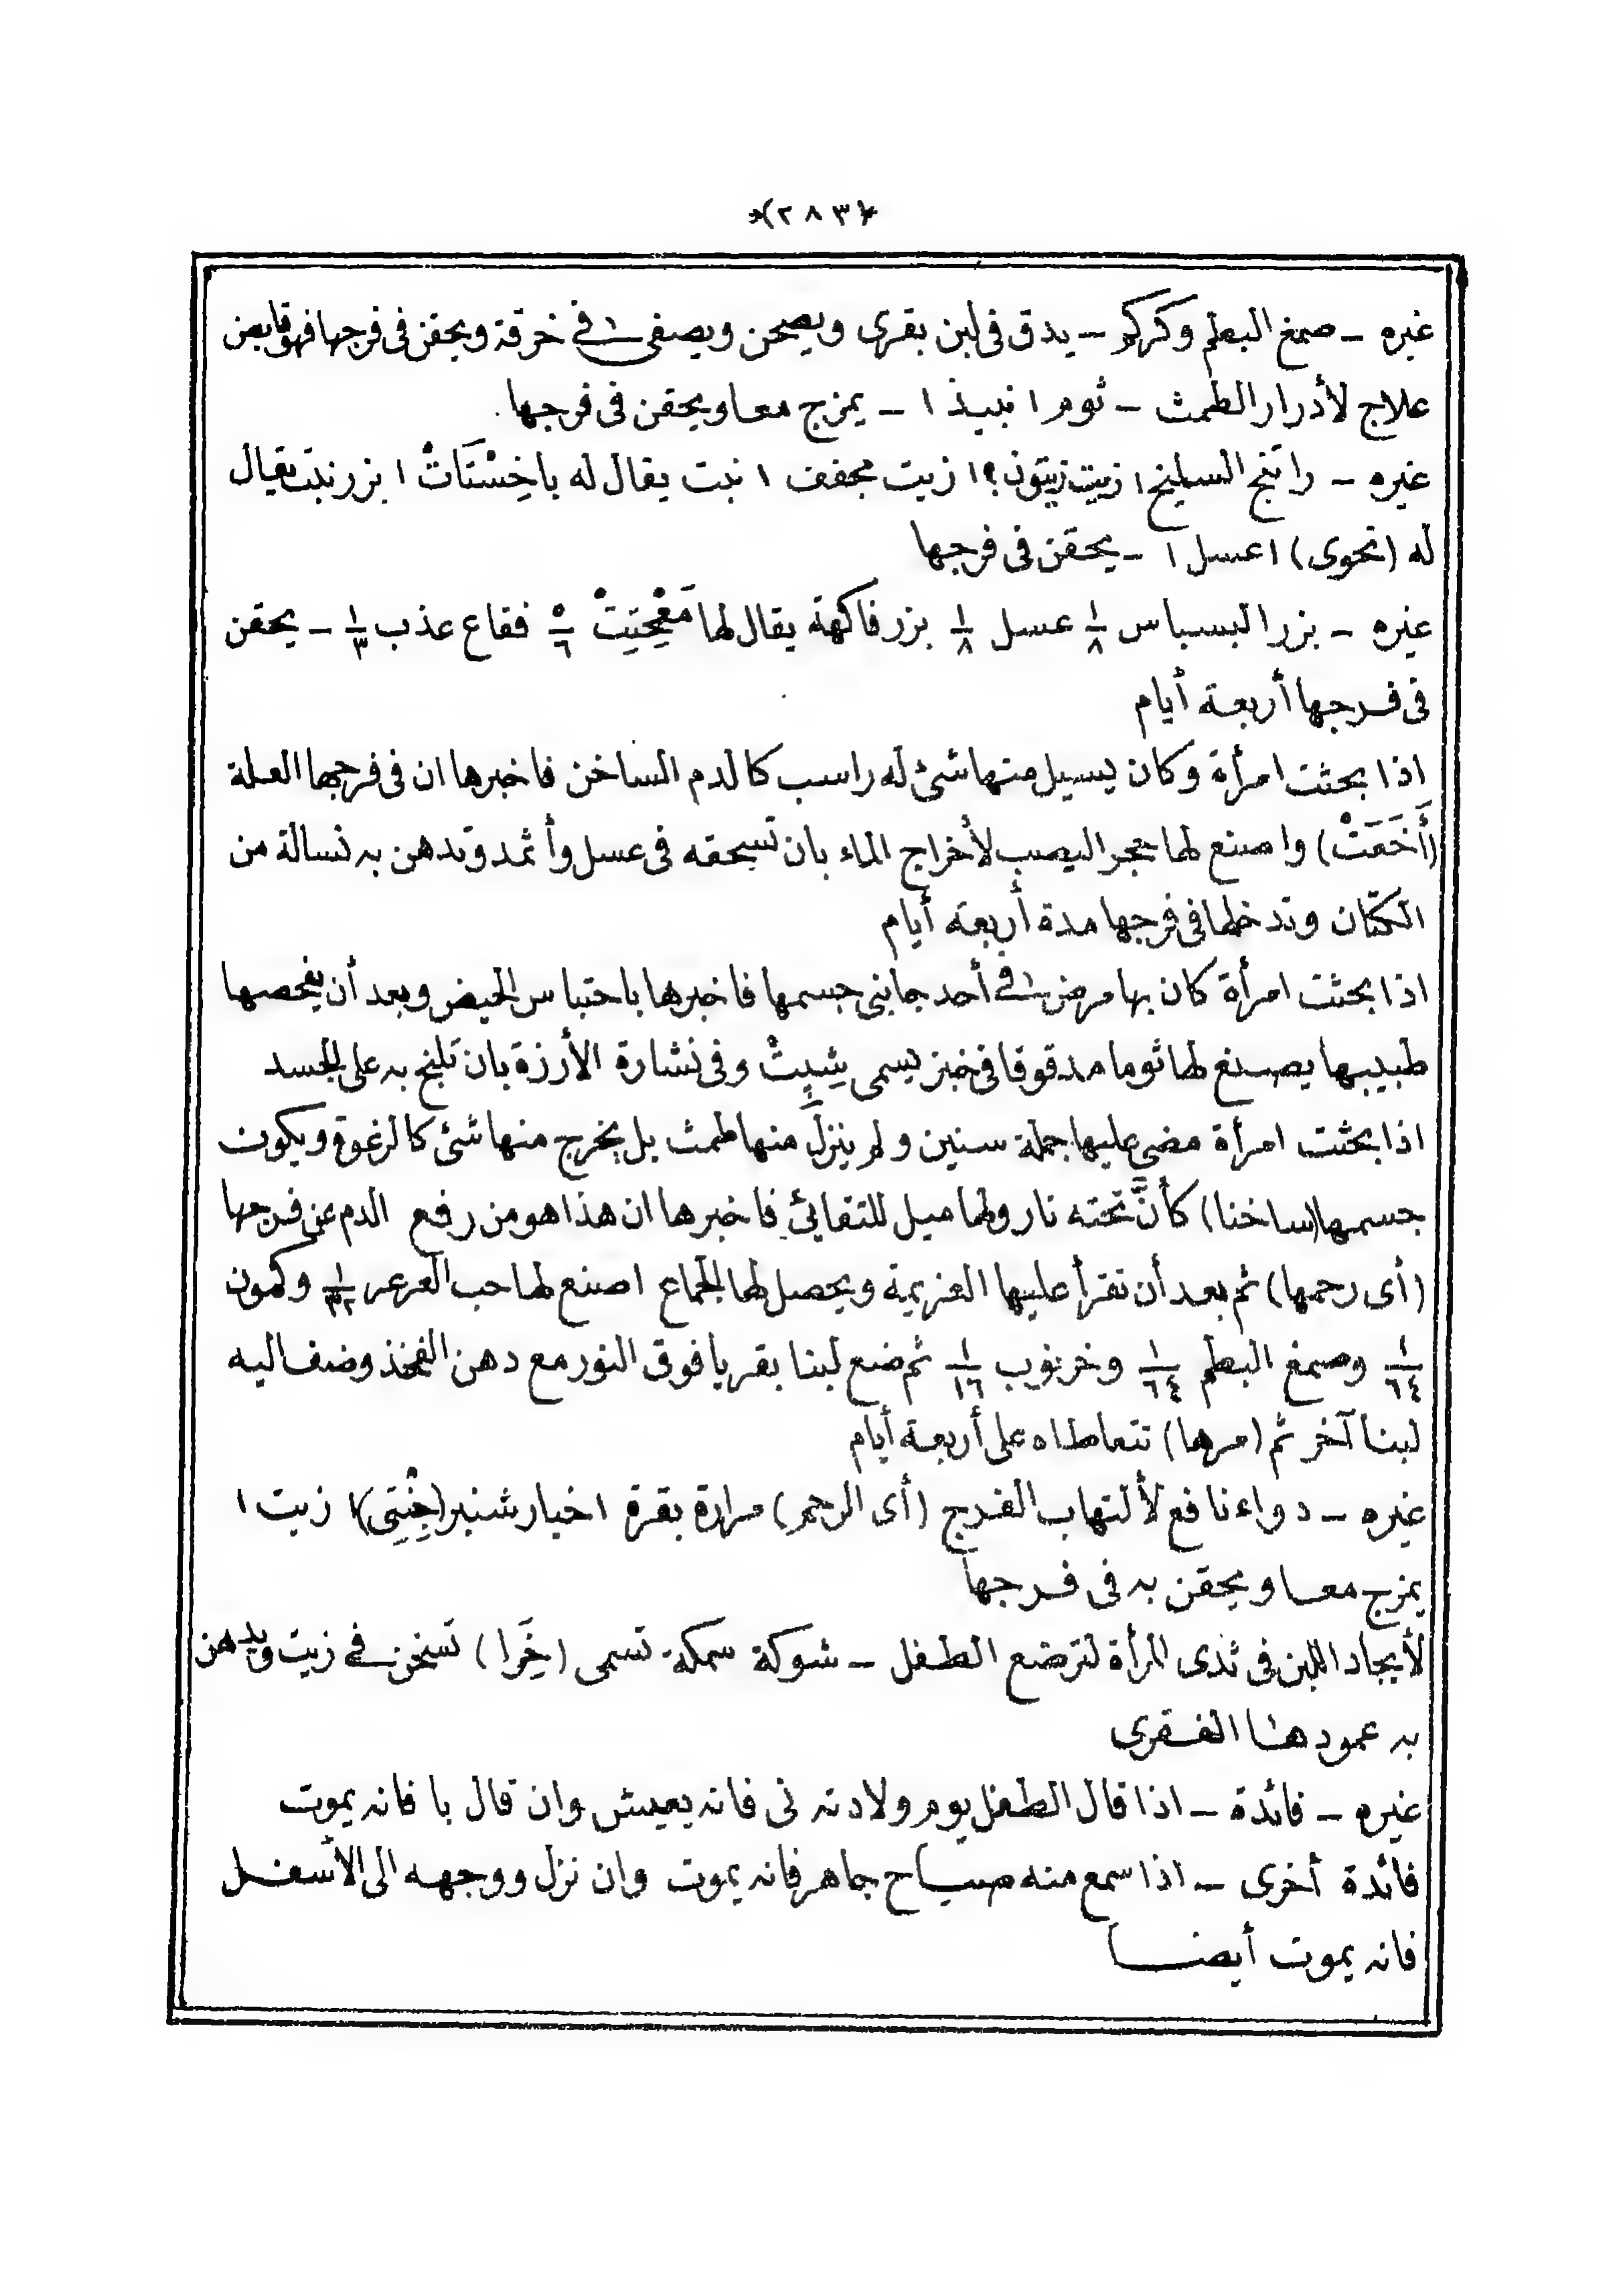 ﴿٢٨٣﴾
غيره – صمغ البطم وكركم – يدق فى لبن بقرى ويصحن ويصفى فى خرقة ويحقن فى فرجها فهو قابض
علاج لأدرار الطمث – ثوم ١ نبيذ ١ – يمزج معا ويحقن فى فرجها.
غيره – راتنج السليخ ١ زيت زيتون؟ ١ زيت مجفف ١ نبت يقال له باخِسْتَاتْ ١ بزر نبت يقال
له (نحوى) ١ عسل ١ – يحقن فى فرجها
غيره – بزر البسباس ١/٨ عسل ١/٨ بزر فاكهة يقال لها مَعْجِتِتْ ٥/٦ فقاع عذب ١/٣ – يحقن
فى فرجها أربعة أيام
اذا بحثت امرأة وكان يسيل منها شئ له راسب كالدم الساخن فاخبرها ان فى فرجها العلة
(أَخَعَتْ) واصنع لها حجر اليصب لأخراج الماء بان تسحقه فى عسل وأثمد وتدهن به نسالة من
الكتان وتدخلها فى فرجها مدة أربعة أيام
اذا بحثت امرأة كان بها مرض فى أحد جانبى جسمها فاخبرها باحتباس الحيض وبعد أن يفحصها
طبيبها يصنع لها ثوما مدقوقا فى خبز يسمى شِبِتْ وفى نشارة الأرزة بان تلبخ به على الجسد
اذا بحثت امرأة مضى عليها جملة سنين ولم ينزل منها طمث بل يخرج منها شئ كالرغوة ويكون
جسمها (ساخنا) كأنَّ تحته نار ولها ميل للتقائئ فاخبرها ان هذا هو من رفع الدم عن فرجها
(أى رحمها) ثم بعد أن تقرأ عليها العزيمة ويحصل لها الجماع اصنع لها حب العرعر ١/٣٢ وكمون
١/٦٤ وصمغ البطم ١/٦٤ وخرنوب ١/١٦ ثم ضع لبنا بقريا فوق النور مع دهن الفخذ وضف اليه
لبنا آخر ثم (مرها) تتعاطاه على أربعة أيام
غيره – دواء نافع لألتهاب الفرج (أى الرحم) مرارة بقرة ١ خيار شنبر (جِنْتِى) ١ زيت ١
يمزج معا ويحقن به فى فرجها
لأيجاد اللبن فى ثدى المرأة لترضع الطفل – شوكة سمكة تسمى (خَرا) تسخن فى زيت ويدهن
به عمودها الفقرى
غيره – فائدة – اذا قال الطفل يوم ولادته نى فانه يعيش وان قال با فانه يموت
فائدة أخرى – اذا سمع منه صياح جاهر فانه يموت وان نزل ووجهه الى الأسفل
فانه يموت أيضا